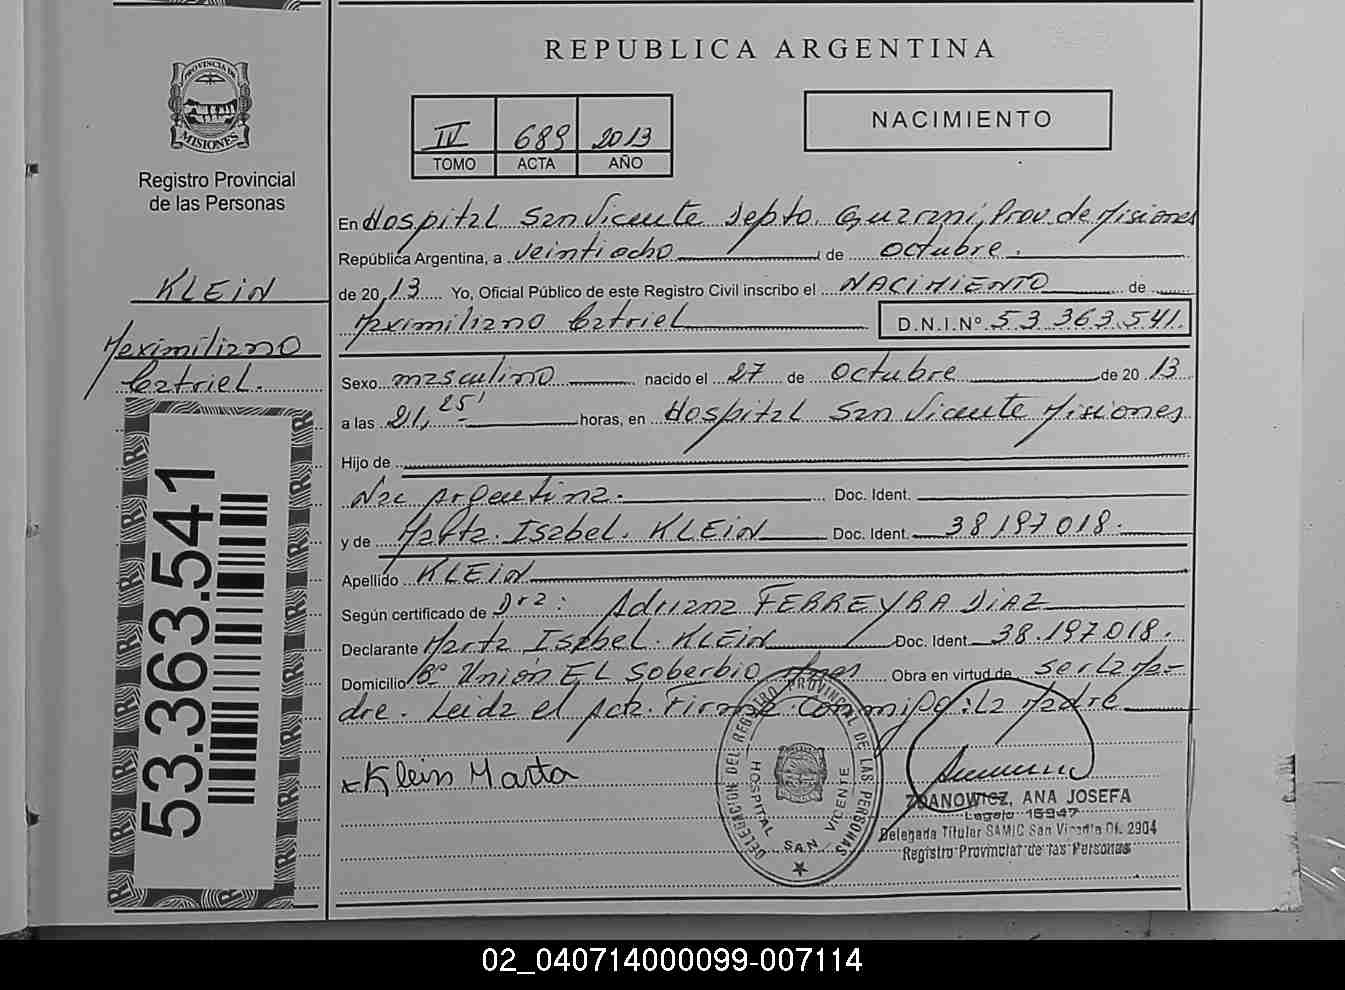 REPUBLICA ARGENTINA
PROVINCIA DE MISIONES
Registro Provincial
de las Personas
IV 689 2013
TOMO ACTA AÑO
NACIMIENTO
KLEIN
Maximiliano
Catriel.
53.363.541
En Hospital San Vicente Depto. Guarani, Prov. de Misiones
República Argentina, a veintiocho de octubre.
de 20 13 Yo, Oficial Público de este Registro Civil inscribo el NACIMIENTO de
Maximiliano Catriel D.N.I.Nº 53 363.541.
Sexo masculino nacido el 27 de Octubre de 20 13
a las 21, 25' horas, en Hospital San Vicente Misiones
Hijo de
Nac Argentina. Doc. Ident.
y de Marta. Isabel. KLEIN Doc. Ident. 38197018.
Apellido KLEIN
Según certificado de Dra: Adriana FERREYRA DIAZ
Declarante Marta Isabel. KLEIN Doc. Ident. 38.197018.
Domicilio Bº Unión EL Soberbio Mnes Obra en virtud de ser la Ma-
dre. Leida el Acta. Firma Conmigo: La Madre
x Klein Marta
DELEGACION DEL REGISTRO PROVINCIAL DE LAS PERSONAS
HOSPITAL SAN VICENTE
ZDANOWICZ, ANA JOSEFA
Legajo 15947
Delegada Titular SAMIC San Vicente Of. 2904
Registro Provincial de las Personas
02_040714000099-007114